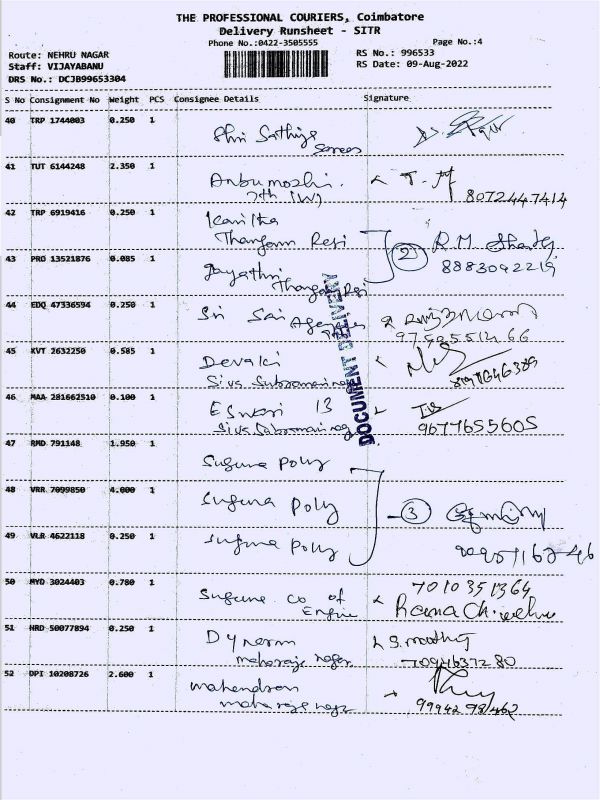 THE PROFESSIONAL COURIERS, Coimbatore
Delivery Runsheet - SITR
Phone No.:0422-3505555
Page No.:4
Route: NEHRU NAGAR
Staff: VIJAYABANU
DRS No.: DCJB99653304
RS No.: 996533
RS Date: 09-Aug-2022
S No Consignment No Weight PCS Consignee Details Signature
40 TRP 1744003 0.250 1 Shri Sathiya
Sarees
41 TUT 6144248 2.350 1 Anbumozhi.
7th
8072447414
42 TRP 6919416 0.250 1 Kanitha
Thangam Resi
2 R.M
43 PRO 13521876 0.085 1 Gayathri
8883092219
Resi
44 EDQ 47336594 0.250 1 Sri Sai
Agencies
45 KVT 2632250 0.585 1 Devaki
Siva Subramani nag
46 MAA 281662510 0.100 1 Eswari 13
Siva Subramani nag
9677655605
DOCUMENT DELIVERY
47 RMD 791148 1.950 1 Suguna Poly
48 VRR 7099850 4.000 1 Suguna Poly
3
49 VLR 4622118 0.250 1 Suguna Poly
50 MYD 3024403 0.780 1 Suguna Co of
Engine
7010351364
51 HRD 50077894 0.250 1
maharaja nagar
7094637280
52 DPI 10208726 2.600 1 Mahendran
maharaja nagar
9994298462